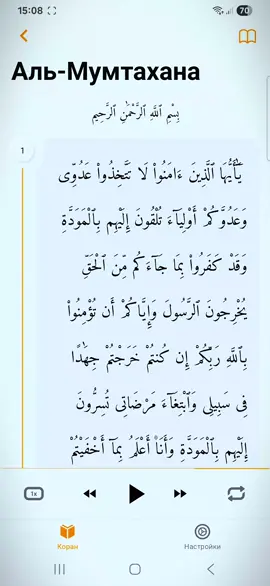 15:08
70
Аль-Мумтахана
بِسْمِ ٱللَّهِ ٱلرَّحْمَٰنِ ٱلرَّحِيمِ
1
يَٰٓأَيُّهَا ٱلَّذِينَ ءَامَنُوا۟ لَا تَتَّخِذُوا۟ عَدُوِّى
وَعَدُوَّكُمْ أَوْلِيَآءَ تُلْقُونَ إِلَيْهِم بِٱلْمَوَدَّةِ
وَقَدْ كَفَرُوا۟ بِمَا جَآءَكُم مِّنَ ٱلْحَقِّ
يُخْرِجُونَ ٱلرَّسُولَ وَإِيَّاكُمْ أَن تُؤْمِنُوا۟
بِٱللَّهِ رَبِّكُمْ إِن كُنتُمْ خَرَجْتُمْ جِهَٰدًا
فِى سَبِيلِى وَٱبْتِغَآءَ مَرْضَاتِى تُسِرُّونَ
إِلَيْهِم بِٱلْمَوَدَّةِ وَأَنَا۠ أَعْلَمُ بِمَآ أَخْفَيْتُمْ
1x
Коран
Настройки